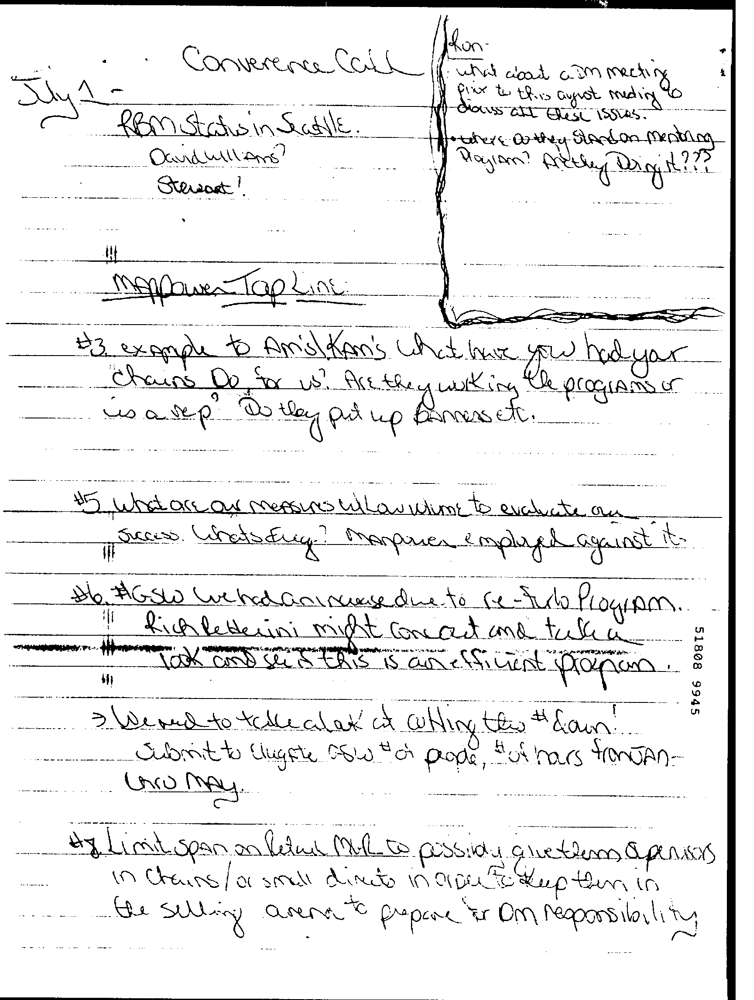 Converence Call
July 1 -
RBM Status in Seattle.
David Williams?
Stewart!
Ron-
what about a DM meeting
prior to this august meeting to
discuss all these issues.
• where do they stand on mentoring
Program? Are they Doing it???
Manpower Top Line:
#3. example to Am's/Kam's what have you had your
chains Do, for us? Are they working the programs or
is a rep? Do they put up Banners etc.
#5 what are our measures to evaluate our
success. Whats Avg.? Manpower employed against it.
#6. #GSW we had an increase due to re-Turb Program.
Rich might come out and take a
look and see if this is an efficient program.
→ We need to take a look at cutting this # down!
Submit to GSW # of people, # of hours from JAN-
thru MAY.
#8 Limit span on Retail MLR to possibly give them
in Chains/or small directs in order to keep them in
the selling arena to prepare for DM responsibility
51808 9945